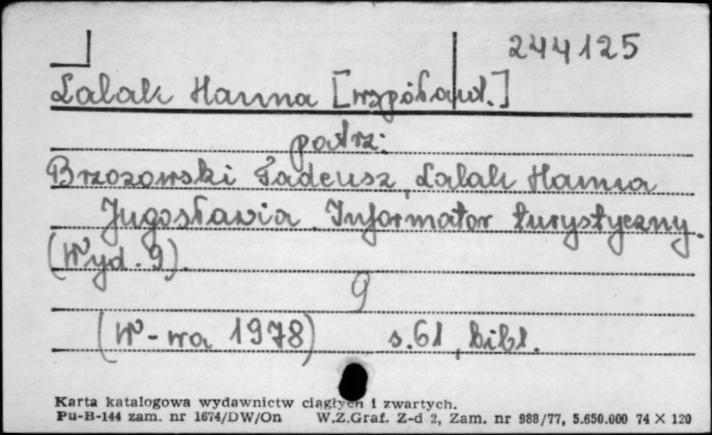 244125
Lalak Hanna [współaut.]
patrz:
Brzozowski Tadeusz, Lalak Hanna
Jugosławia. Informator turystyczny.
(Wyd. 9).
9
(W-wa 1978) s. 61, bibl.
Karta katalogowa wydawnictw ciągłych i zwartych.
Pu-B-144 zam. nr 1674/DW/On W.Z.Graf. Z-d 2, Zam. nr 988/77, 5.650.000 74 X 120